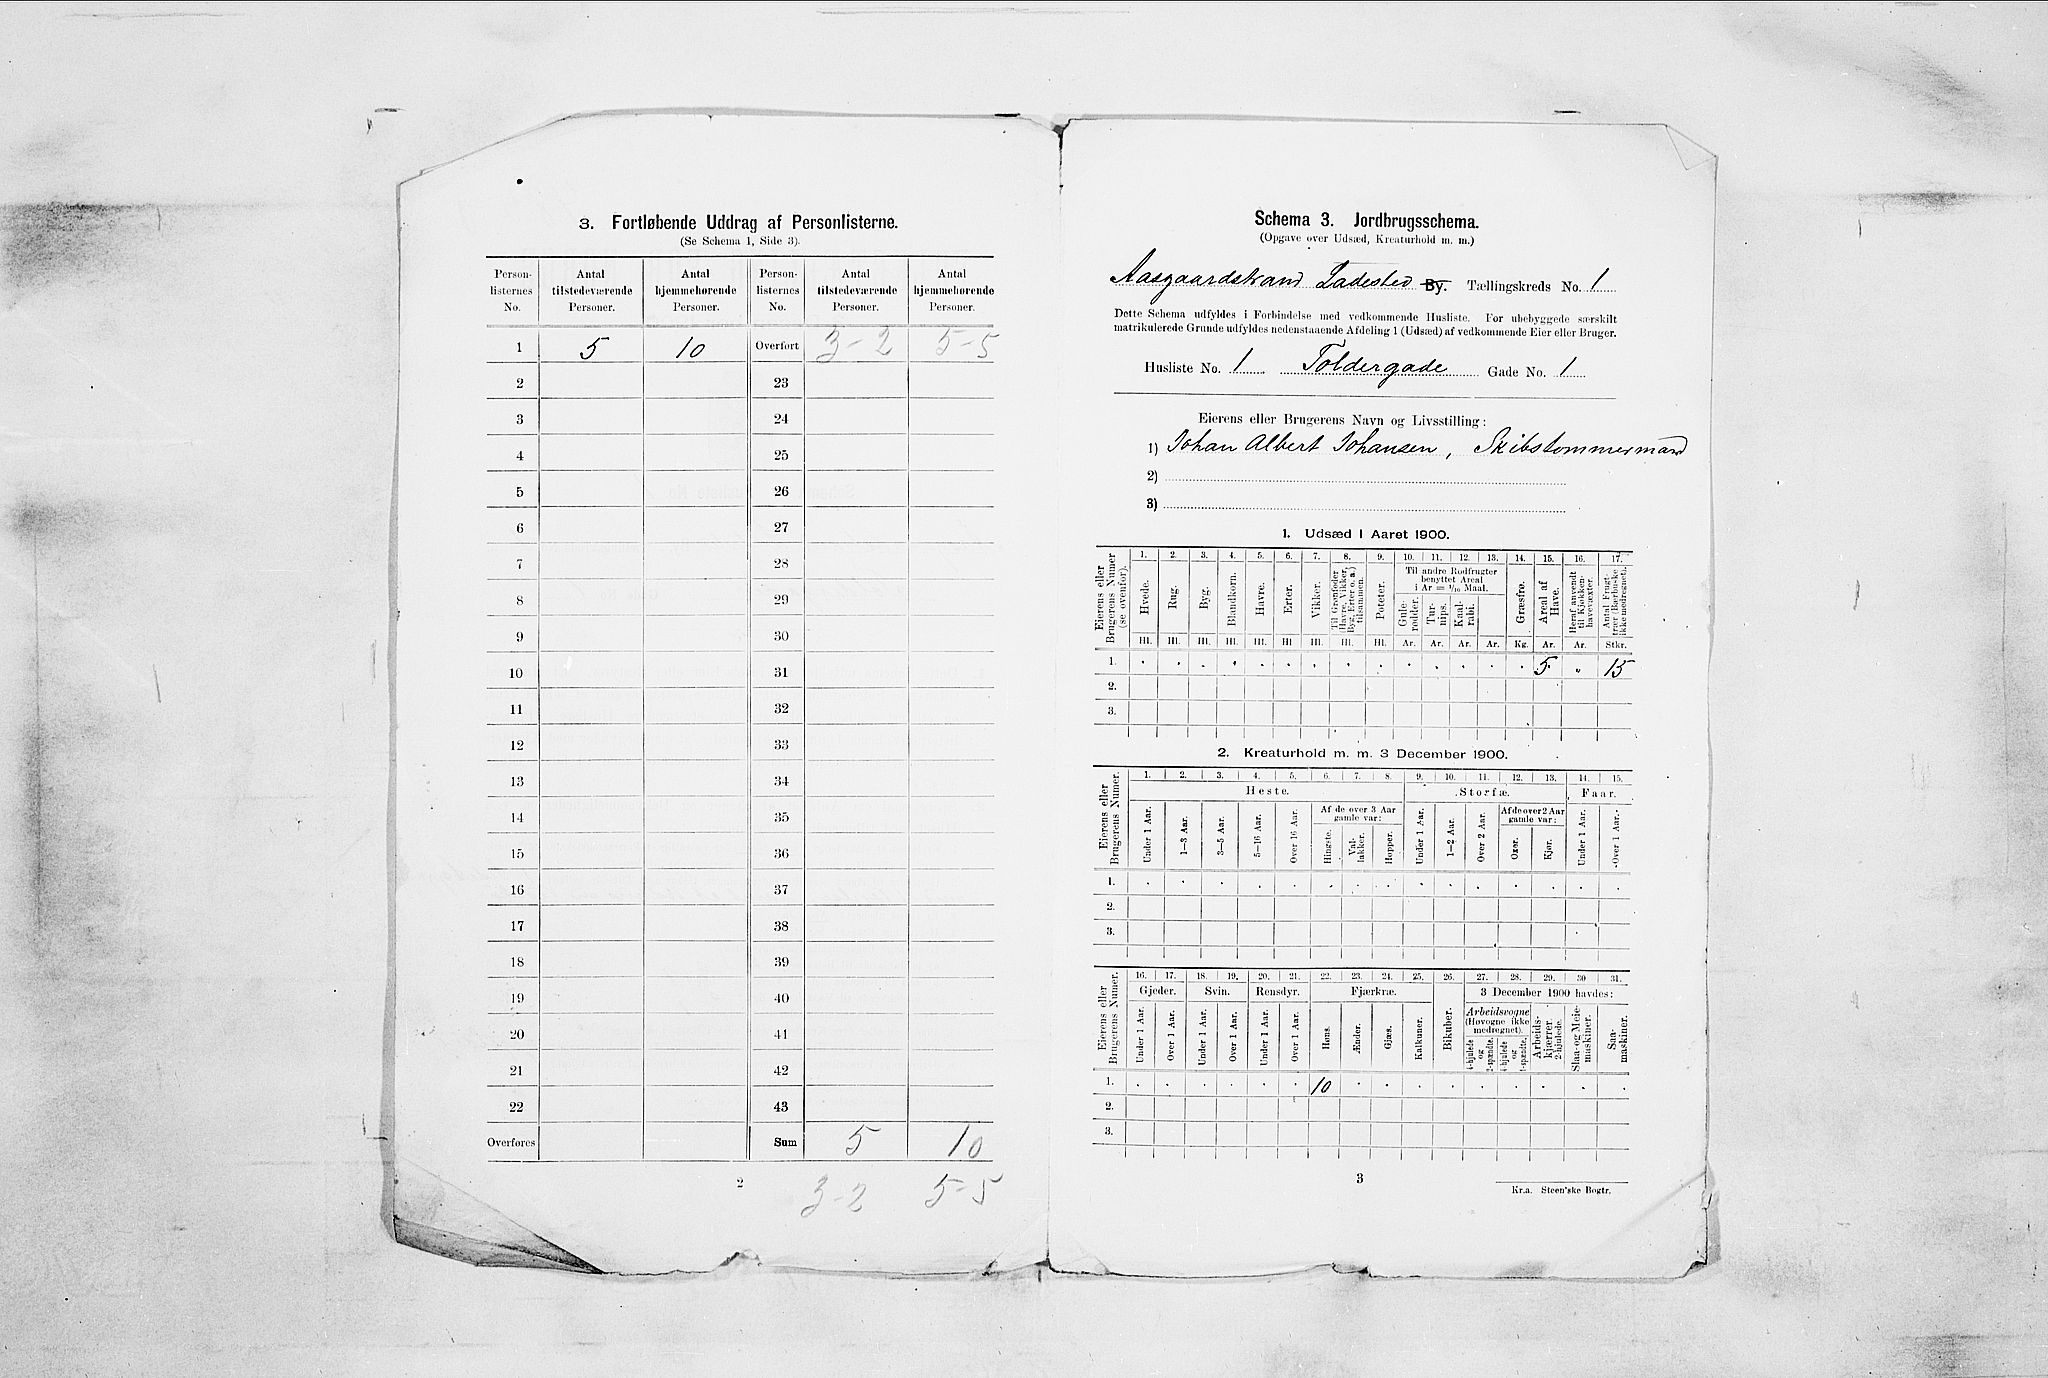 3. Fortløbende Uddrag af Personlisterne.
(Se Schema 1, Side 3).
Person-listernes No. Antal tilstedeværende Personer. Antal hjemmehørende Personer. Person-listernes No. Antal tilstedeværende Personer. Antal hjemmehørende Personer.
1 5 10 Overført 3-2 5-5
2 23
3 24
4 25
5 26
6 27
7 28
8 29
9 30
10 31
11 32
12 33
13 34
14 35
15 36
16 37
17 38
18 39
19 40
20 41
21 42
22 43
Overføres Sum 5 10
2 3-2 5-5
Schema 3. Jordbrugsschema.
(Opgave over Udsæd, Kreaturhold m. m.)
Aasgaardstrand Ladested By. Tællingskreds No. 1
Dette Schema udfyldes i Forbindelse med vedkommende Husliste. For ubebyggede særskilt
matrikulerede Grunde udfyldes nedenstaaende Afdeling 1 (Udsæd) af vedkommende Eier eller Bruger.
Husliste No. 1 Toldergade Gade No. 1
Eierens eller Brugerens Navn og Livsstilling:
1) Johan Albert Johansen, Skibstømmermand
2)
3)
1. Udsæd i Aaret 1900.
1. 2. 3. 4. 5. 6. 7. 8. 9. 10. 11. 12. 13. 14. 15. 16. 17.
Eierens eller Brugerens Numer (se ovenfor). Hvede. Rug. Byg. Blandkorn. Havre. Erter. Vikker. Til Grønfoder (Havre, Vikker, Byg, Erter o. a.) tilsammen. Poteter. Til andre Rodfrugter benyttet Areal i Ar = 1/10 Maal. Gule-rødder. Tur-nips. Kaal-rabi. Græsfrø. Areal af Have. Heraf anvendt til Kjøkken-havevæxter. Antal Frugt-trær (Bærbuske ikke medregnet).
Hl. Hl. Hl. Hl. Hl. Hl. Hl. Hl. Hl. Ar. Ar. Ar. Ar. Kg. Ar. Ar. Stkr.
1. . . . . . . . . . . . . . . 5 „ 15
2.
3.
2. Kreaturhold m. m. 3 December 1900.
1. 2. 3. 4. 5. 6. 7. 8. 9. 10. 11. 12. 13. 14. 15.
Eierens eller Brugerens Numer. Heste. Storfæ. Faar.
Af de over 3 Aar gamle var: Af de over 2 Aar gamle var:
Under 1 Aar. 1—3 Aar. 3—5 Aar. 5—16 Aar. Over 16 Aar. Hingste. Val-lakker. Hopper. Under 1 Aar. 1—2 Aar. Over 2 Aar. Oxer. Kjør. Under 1 Aar. Over 1 Aar.
1. . . . . . . . . . . . . . . .
2.
3.
16. 17. 18. 19. 20. 21. 22. 23. 24. 25. 26. 27. 28. 29. 30 31.
Eierens eller Brugerens Numer. Gjeder. Svin. Rensdyr. Fjærkræ. Bikuber. 3 December 1900 havdes:
Arbeidsvogne (Høvogne ikke medregnet).
Under 1 Aar. Over 1 Aar. Under 1 Aar. Over 1 Aar. Under 1 Aar. Over 1 Aar. Høns. Ænder. Gjæs. Kalkuner. 4-hjulede og 2-spændte. 4-hjulede og 1-spændte. Arbeids-kjærrer, 2-hjulede. Slaa- og Meie-maskiner. Saa-maskiner.
1. . . . . . . 10 . . . . . . . . .
2.
3.
3
Kr.a. Steen'ske Bogtr.